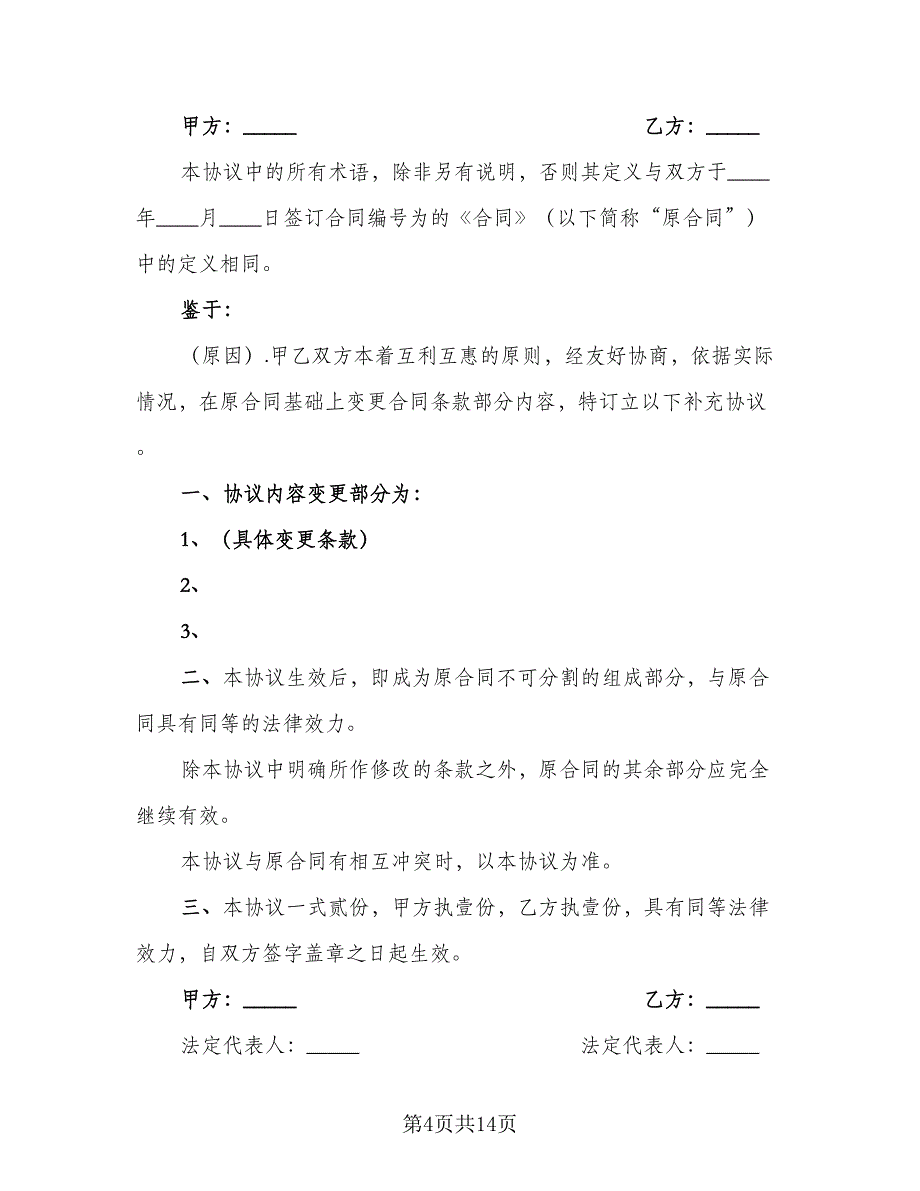 甲方：_____ 乙方：_____
本协议中的所有术语，除非另有说明，否则其定义与双方于____
年____月____日签订合同编号为的《合同》（以下简称“原合同”）
中的定义相同。
鉴于：
（原因）.甲乙双方本着互利互惠的原则，经友好协商，依据实际
情况，在原合同基础上变更合同条款部分内容，特订立以下补充协议
。
一、协议内容变更部分为：
1、（具体变更条款）
2、
3、
二、本协议生效后，即成为原合同不可分割的组成部分，与原合
同具有同等的法律效力。
除本协议中明确所作修改的条款之外，原合同的其余部分应完全
继续有效。
本协议与原合同有相互冲突时，以本协议为准。
三、本协议一式贰份，甲方执壹份，乙方执壹份，具有同等法律
效力，自双方签字盖章之日起生效。
甲方：_____ 乙方：_____
法定代表人：_____ 法定代表人：_____
第4页共14页